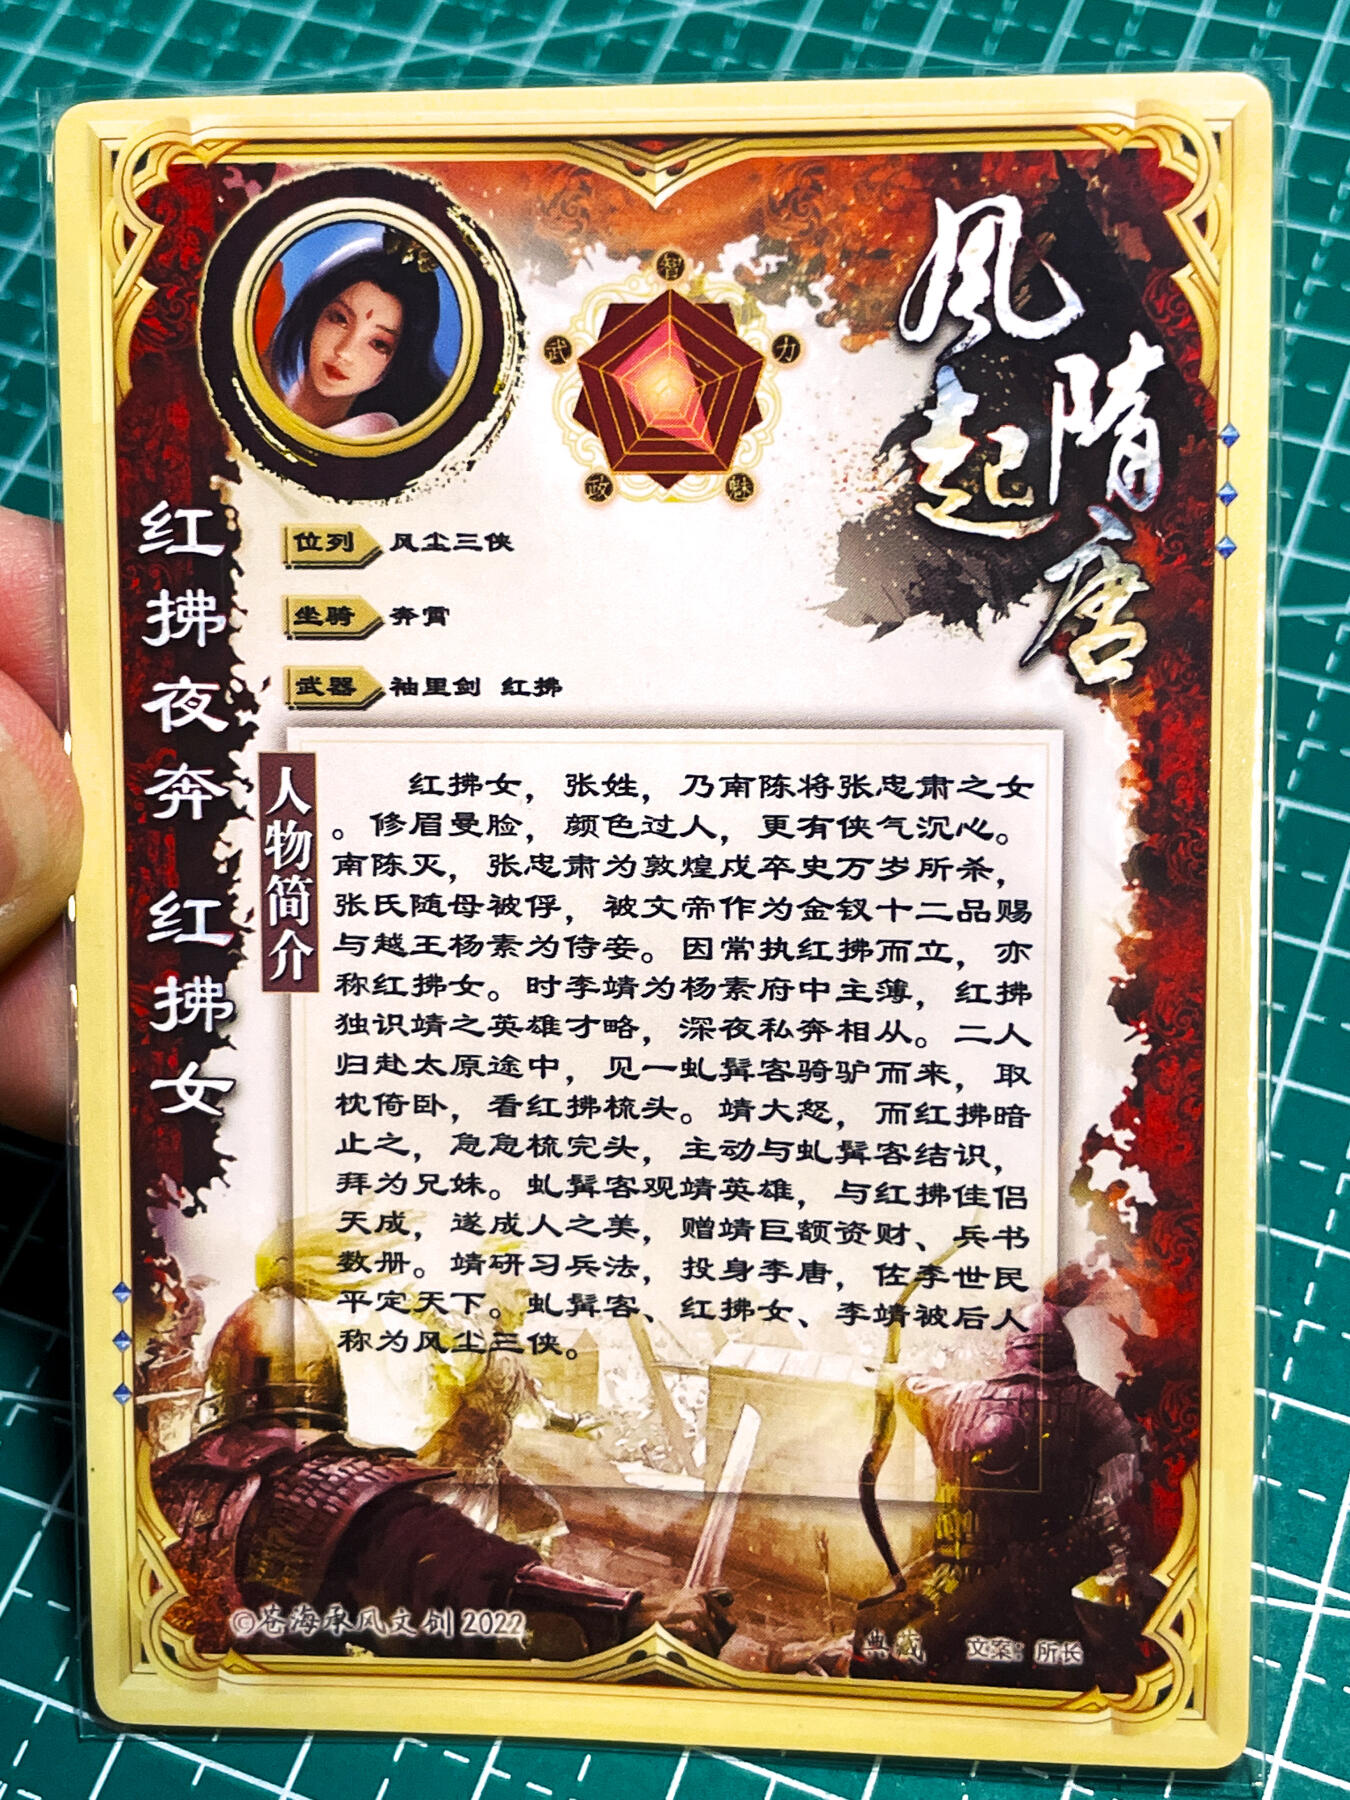 風起
隋唐
智
武
力
政
魅
红拂夜奔 红拂女
位列 风尘三侠
坐骑 奔霄
武器 袖里剑 红拂
人物简介
红拂女，张姓，乃南陈将张忠肃之女
。修眉曼脸，颜色过人，更有侠气沉心。
南陈灭，张忠肃为敦煌戍卒史万岁所杀，
张氏随母被俘，被文帝作为金钗十二品赐
与越王杨素为侍妾。因常执红拂而立，亦
称红拂女。时李靖为杨素府中主薄，红拂
独识靖之英雄才略，深夜私奔相从。二人
归赴太原途中，见一虬髯客骑驴而来，取
枕倚卧，看红拂梳头。靖大怒，而红拂暗
止之，急急梳完头，主动与虬髯客结识，
拜为兄妹。虬髯客观靖英雄，与红拂佳侣
天成，遂成人之美，赠靖巨额资财、兵书
数册。靖研习兵法，投身李唐，佐李世民
平定天下。虬髯客、红拂女、李靖被后人
称为风尘三侠。
©苍海承风文创 2022
典藏 文案：所长